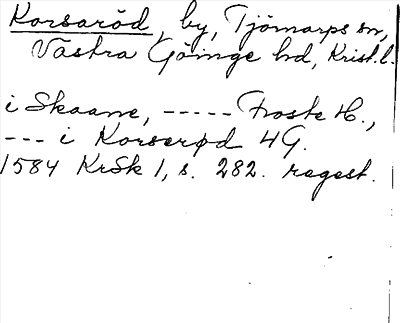 Korsaröd, by, Tjörnarps sn,
Västra Göinge hd, Krist.l.
i Skaane, ----- Froste H.,
--- i Korserød 4 G.
1584 KrSk 1, s. 282. regest.